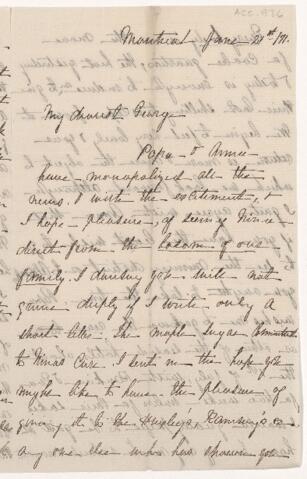 ACC. 876
Montreal June 21st /71.
My dearest George
Papa & Annie
have monopolized all the
news. & with the excitement, &
I hope - pleasure, of seeing Minnie
direct from the bosom of our
family. I daresay you will not
grieve deeply if I write only a
short letter. The maple sugar
to Miss I sent in the hope you
might like to have the pleasure of
giving it to the Ramsay's or
any one else who has shown you